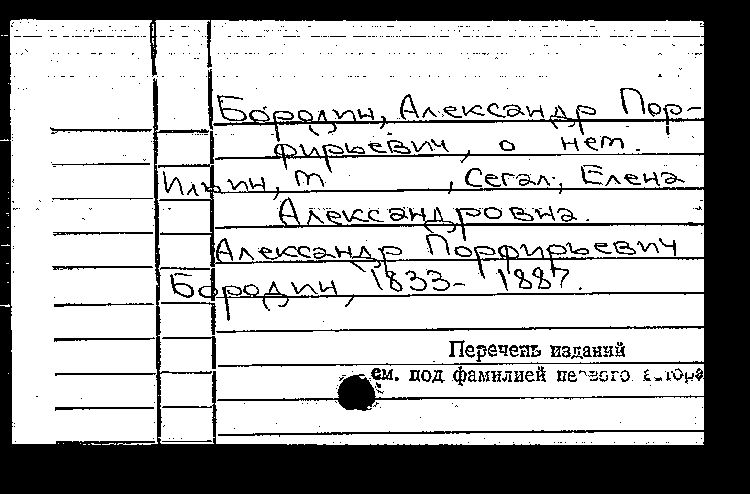 Бородин, Александр Пор-
фирьевич, о нем.
Ильин, М , Сегал, Елена
Александровна.
Александр Порфирьевич
Бородин, 1833- 1887.
Перечень изданий
см. под фамилией первого автора